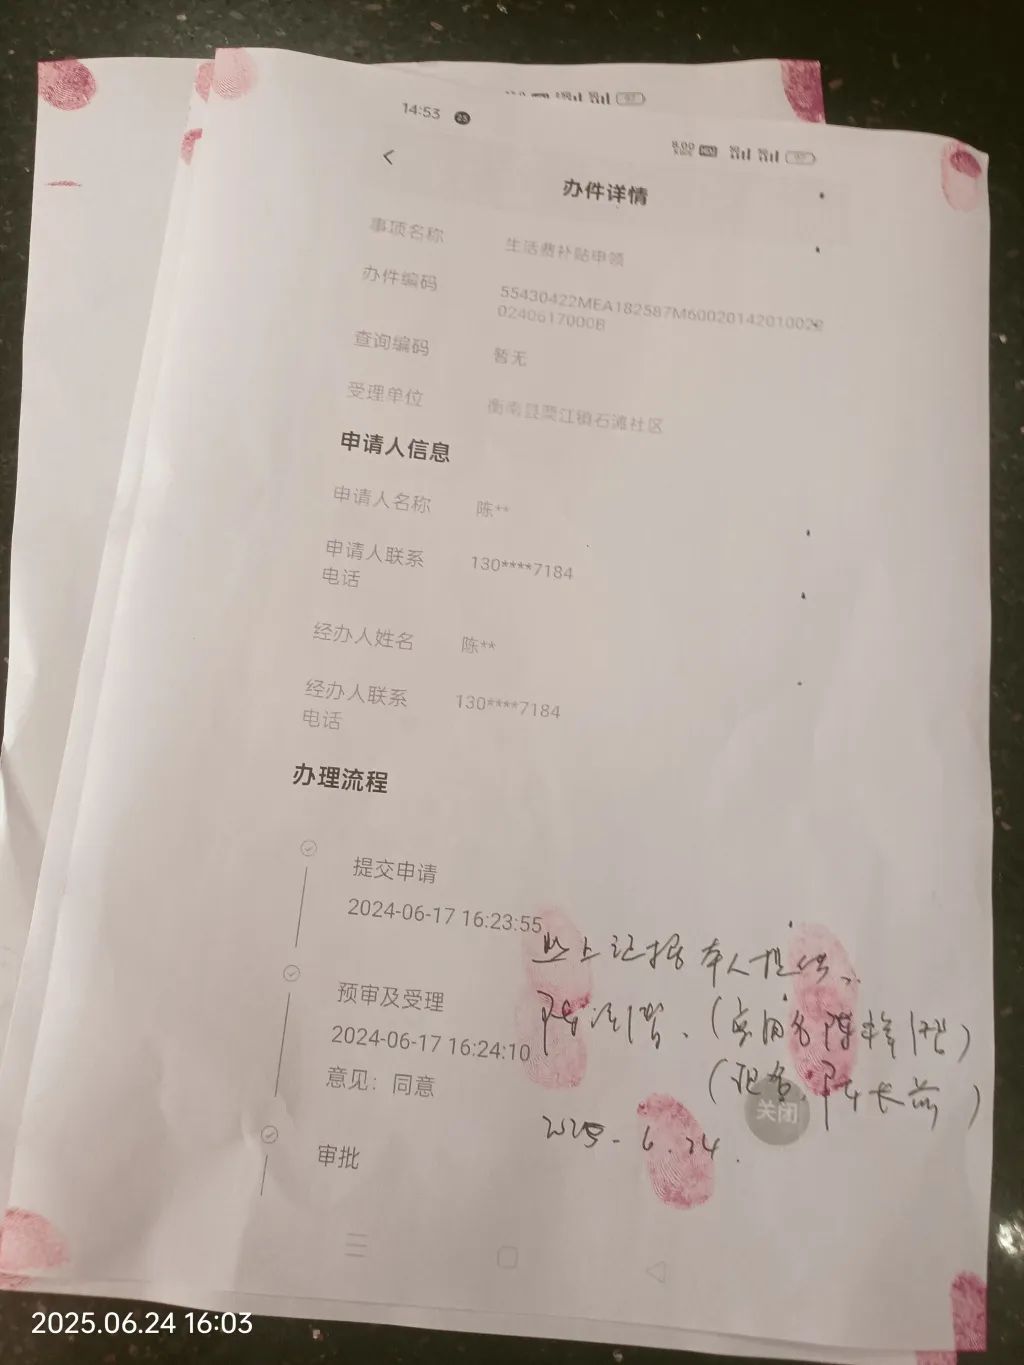 14:53
8.00
办件详情
事项名称 生活费补贴申领
办件编码 55430422MEA182587M6002014201002
02406170008
查询编码 暂无
受理单位 衡南县栗江镇石滩社区
申请人信息
申请人名称 陈**
申请人联系 130****7184
电话
经办人姓名 陈**
经办人联系 130****7184
电话
办理流程
提交申请
2024-06-17 16:23:55
预审及受理
2024-06-17 16:24:10
意见：同意
审批
以上证据本人提供
陈
陈
陈长
关闭
2025-6.24.
2025.06.24 16:03